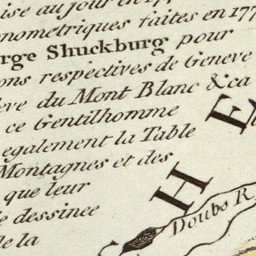 ise au jour en 177
nometriques faites en 177
rge Shuckburg pour
ons respectives de Geneve
ve du Mont Blanc &ca
ce Gentilhomme
egalement la Table
Montagnes et des
que leur
e dessinee
de la
H E
Doubs R